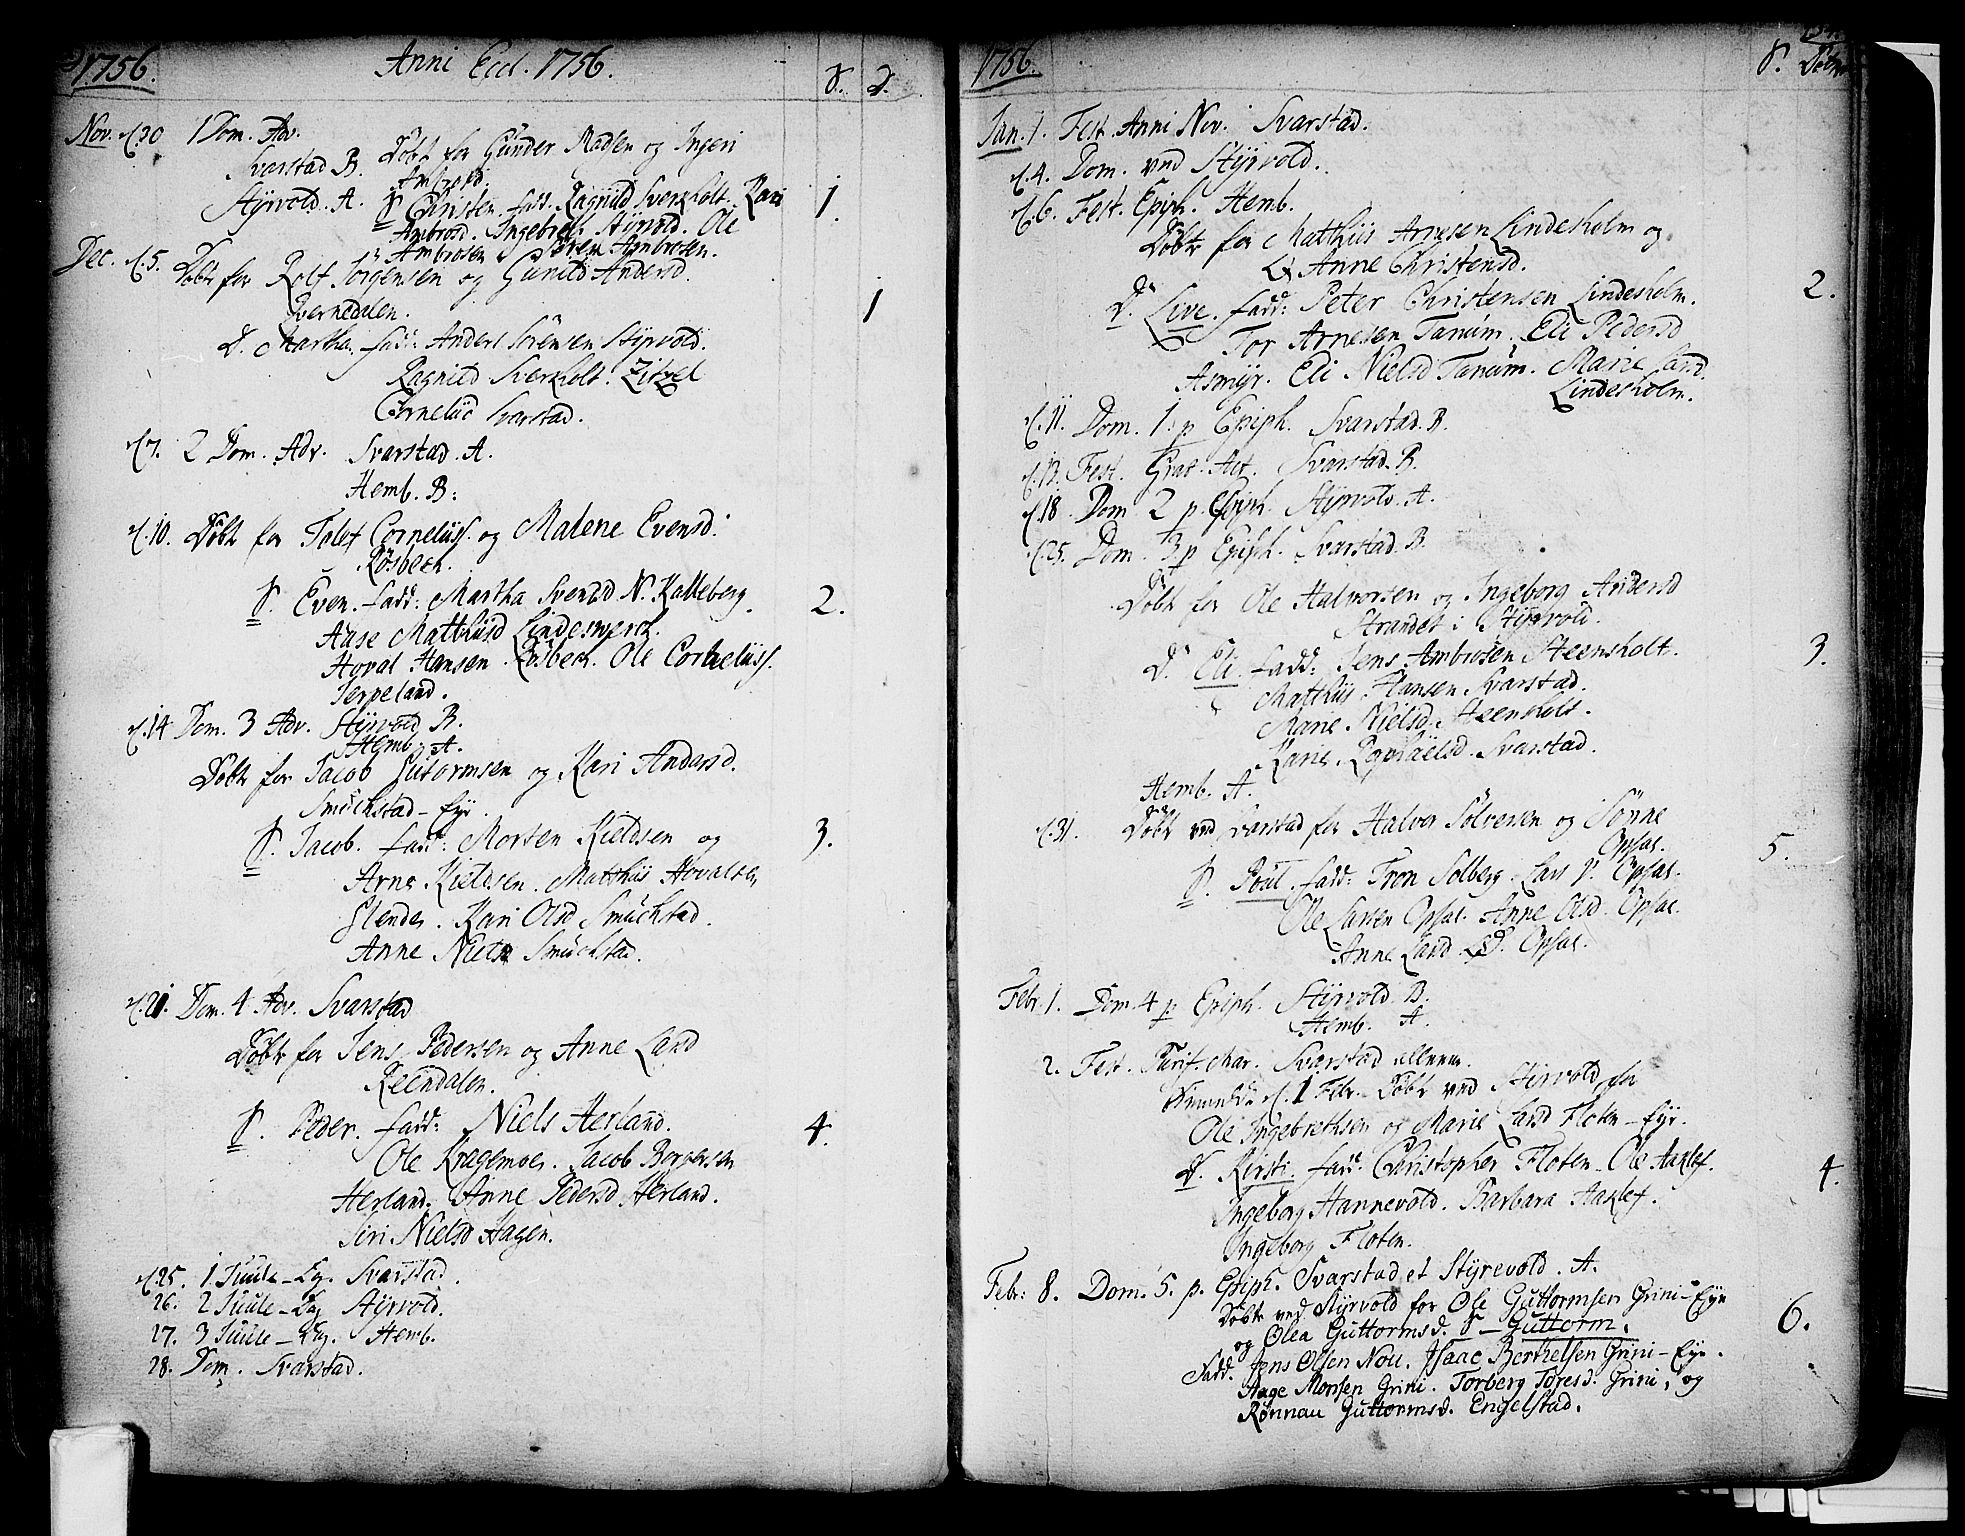 1756. Anni Eccl. 1756. S. D.
Nov. d. 30 1 Dom. Adv.
Svarstad B. Döbt for Gunder Madsen og Ingeri
Ambrosd.
Styrvold. A. S Christen. fadd. Ragnild Sverkholt. Kari 1.
Ambrosd. Ingebret Styrvold. Ole
Ambrosen Sören Ambrosen.
Dec. d. 5. Döbt for Rolf Jörgensen og Gunild Andersd.
Qvernedalen. 1
D. Martha. fadd: Anders Sörensen Styrvold.
Ragnild Sverkholt. Zitzel
Cornelii Svarstad.
d. 7. 2 Dom. Adv. Svarstad. A.
Hemb. B:
d. 10. Döbt for Tolef Corneliiss. og Malene Evensd:
Rösbech.
S. Even. fadd: Martha Svensd N. Kalleberg. 2.
Aase Matthiisd Lindeswerch.
Hoval Hansen Rösbech. Ole Corneliiss.
Jerpeland.
d. 14 Dom. 3 Adv. Styrvold B.
Hemb. A.
Döbt for Jacob Gutormsen og Kari Andersd.
Smuchstad-Eje.
S. Jacob. fadd: Morten Kieldsen og 3.
Arne Kieldsen. Matthiis Hovalsen
Glender. Kari Olsd Smuchstad.
Anne Nielsd Smuchstad.
d. 21. Dom. 4. Adv. Svarstad
Döbt for Jens Pedersen og Anne Larsd
Reendalen.
S. Peder. fadd: Niels Herland. 4.
Ole Kragemoe. Jacob Borgersen
Herland. Anne Pedersd Herland.
Siri Nielsd Hagen.
d. 25. 1 Juule-Dag. Svarstad.
26. 2 Juule-Dag Styrvold.
27. 3 Juule-Dag. Hemb.
28. Dom. Svarstad.
1756. S. Döttre
Jan. 1. Fest. Anni Nov. Svarstad.
d. 4. Dom. ved Styrvold.
d. 6. Fest. Epiph. Hemb.
Döbt for Matthiis Arnesen Lindesholm og
Anne Christensd.
D. Live. fadd: Peter Christensen Lindesholm. 2.
Tor Arnesen Tanum. Eli Pedersd
Asmyr. Eli Nielsd Tanum. Marie Larsd.
Lindesholm.
d. 11. Dom. 1. p Epiph. Svarstad. B.
d. 13. Fest. Grat. Act. Svarstad. B.
d. 18 Dom 2 p. Epiph. Styrvold. A.
d. 25. Dom. 3 p Epiph. Svarstad. B.
Döbt for Ole Halvorsen og Ingeborg Andersd
Strandet i Styrvold.
D. Eli. fadd: Jens Ambrosen Steensholt. 3.
Matthiis Hansen Svarstad.
Marie Nielsd Steensholt.
Karie Raphaelsd. Svarstad.
Hemb. A.
d. 31. Döbt ved Svarstad for Halvor Sölvesen og Sönne
Opsal. 5.
S. Poul. fadd: Tron Solberg. Lars P. Opsal.
Ole Larsen Opsal. Anne Olsd. Opsal.
Anne Larsd. Opsal.
Febr. 1. Dom. 4 p Epiph. Styrvold. B.
Hemb. A.
2. Fest. Purif. Mar. Svarstad allene.
d. 1 Febr. Döbt ved Styrvold for
Ole Ingebrethsen og Marie Larsd Floten-Eje.
D. Kirsti. fadd. Christopher Floten. Ole Aaklef. 4.
Ingeborg Hannevold. Barbara Aaklef.
Ingeborg Floten.
Febr: 8. Dom. 5. p. Epiph. Svarstad et Styrevold. A.
Döbt ved Styrvold for Ole Guttormsen Grini-Eje
og Olea Guttormsd. S-Guttorm. 6.
Fadd. Jens Olsen Nou. Isaac Berthelsen Grini-Eje.
Aage Monsen Grini. Torberg Toresd. Grini, og
Rönnau Guttormsd. Engelstad.